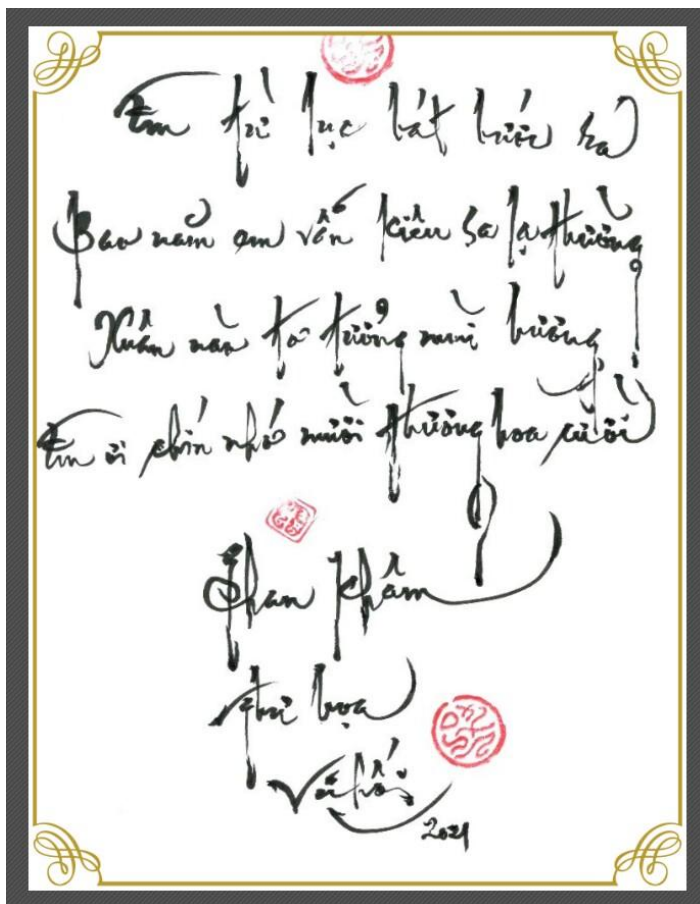 Em từ lục bát bước ra
Bao năm em vẫn kiêu sa lạ thường
Xuân tơ tưởng mùi hương
Em ơi chín nhớ mười thương hoa cười
Phan Khâm
thư họa
Vũ Hối
2021